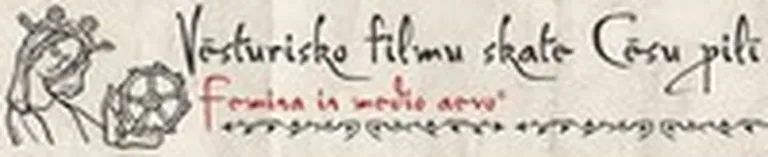 Vēsturisko filmu skate Cēsu pilī
Femina in medio aevo